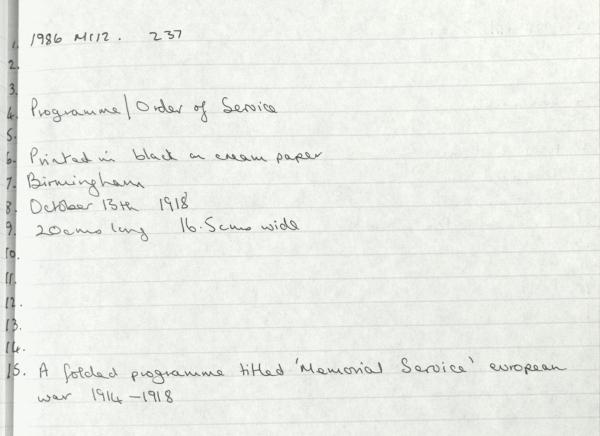 1. 1986 M112. 237
2.
3.
4. Programme/Order of Service
5.
6. Printed in black on cream paper
7. Birmingham
8. October 13th 1918
9. 20cms long 16.5cms wide
10.
11.
12.
13.
14.
15. A folded programme titled 'Memorial Service' european
war 1914-1918